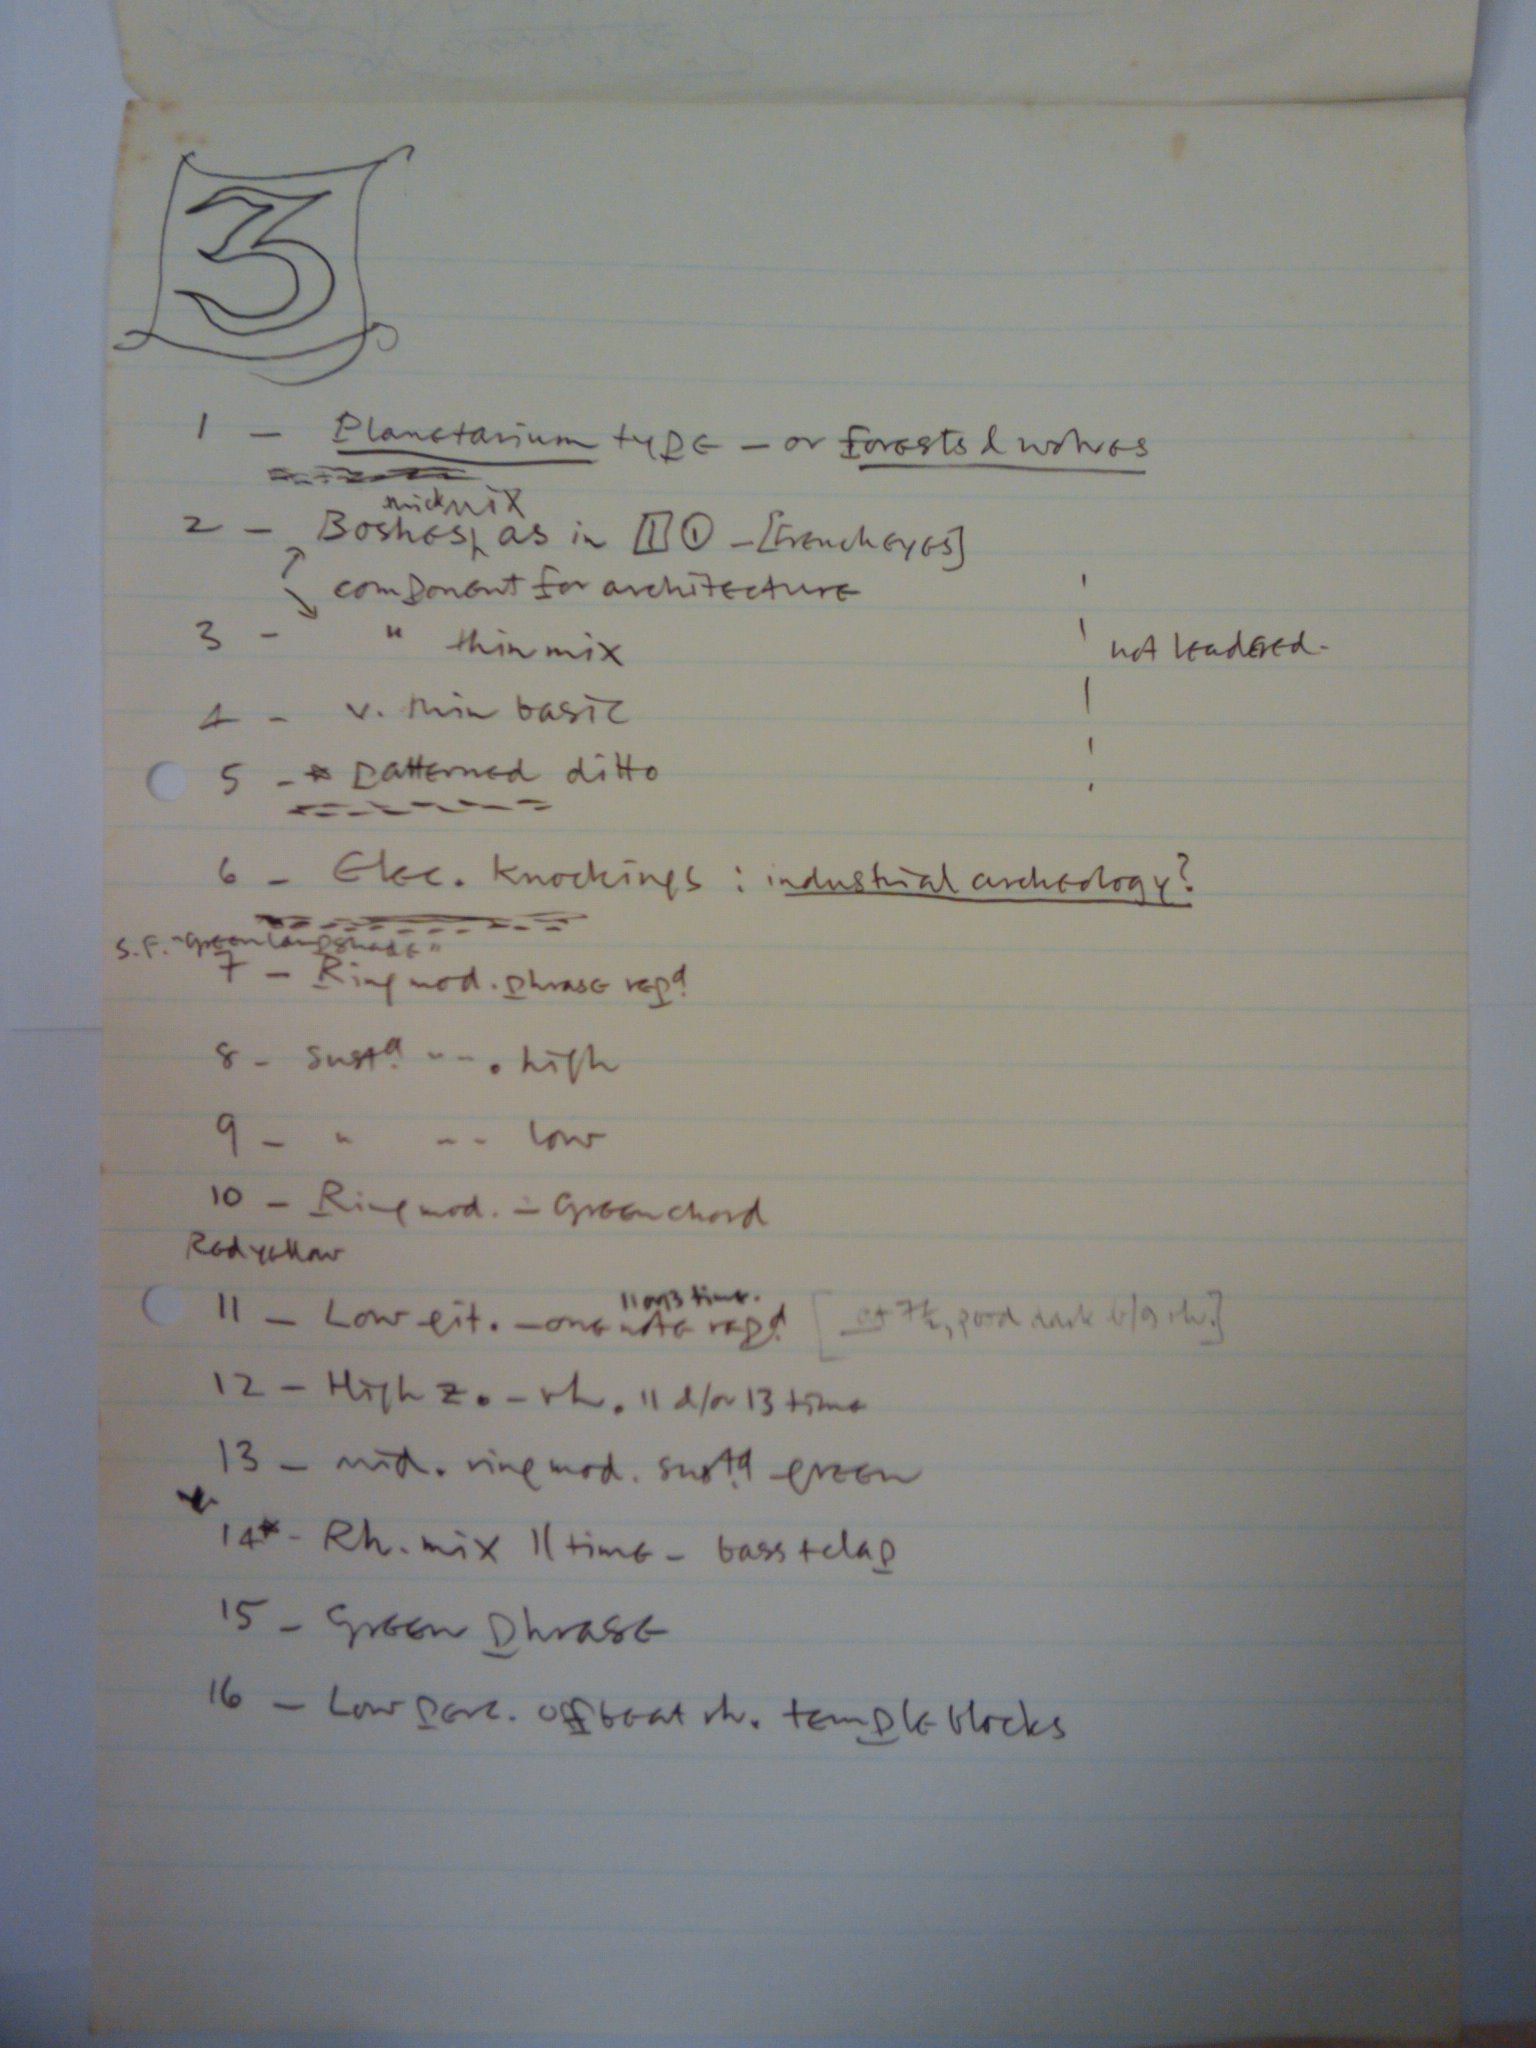 3
1 — Planetarium type — or forests & wolves
thick mix
2 — Boshes, as in II ① — [French eyes]
component for architecture
3 — " thin mix
not leadered.
4 — v. thin basic
5 — * patterned ditto
6 — Elec. Knockings : industrial archeology?
S.F. "Green lampshade"
7 — Ring mod. phrase repd
8 — sustd " " . high
9 — " " " low
10 — Ring mod. — Green chord
Red yellow
11 or 13 time.
11 — Low git. — one note repd [at 7½, good dark b/g rh.]
12 — High Z. — rh. 11 &/or 13 time
13 — mid. ring mod. sustd green
14* — Rh. mix 11 time — bass + clap
15 — Green phrase
16 — Low perc. offbeat rh. temple blocks